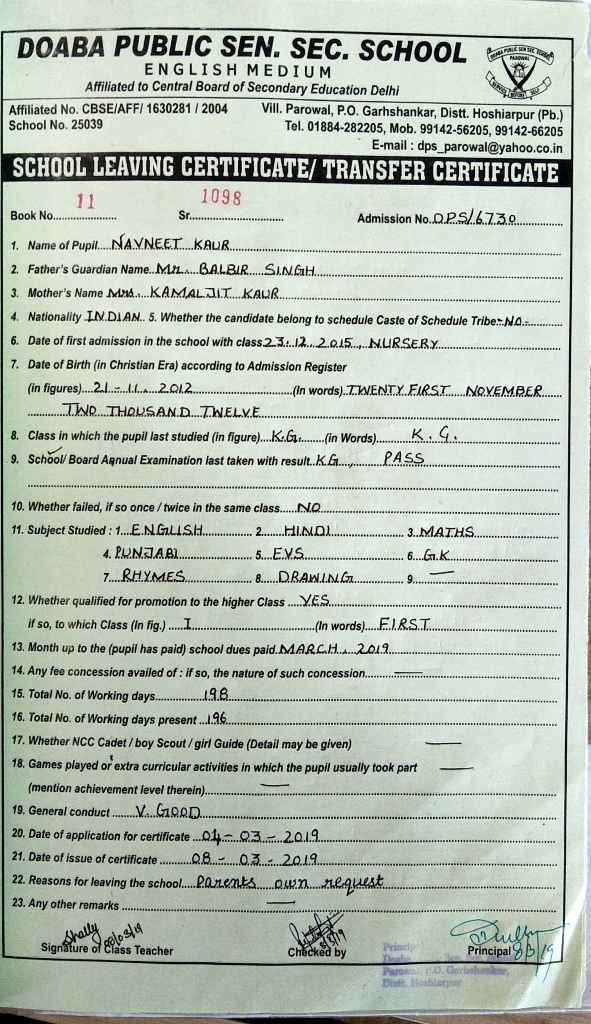 DOABA PUBLIC SEN. SEC. SCHOOL
ENGLISH MEDIUM
Affiliated to Central Board of Secondary Education Delhi
DOABA PUBLIC SEN. SEC. SCHOOL
PAROWAL
Affiliated No. CBSE/AFF/ 1630281 / 2004
Vill. Parowal, P.O. Garhshankar, Distt. Hoshiarpur (Pb.)
School No. 25039
Tel. 01884-282205, Mob. 99142-56205, 99142-66205
E-mail : dps_parowal@yahoo.co.in
SCHOOL LEAVING CERTIFICATE/ TRANSFER CERTIFICATE
Book No. 11 Sr. 1098 Admission No. DPS/6730
1. Name of Pupil NAVNEET KAUR
2. Father's Guardian Name Mr. BALBIR SINGH
3. Mother's Name Mrs. KAMALJIT KAUR
4. Nationality INDIAN 5. Whether the candidate belong to schedule Caste of Schedule Tribe -NO-
6. Date of first admission in the school with class 23.12.2015, NURSERY
7. Date of Birth (in Christian Era) according to Admission Register
(in figures) 21-11.2012 (In words) TWENTY FIRST NOVEMBER
TWO THOUSAND TWELVE
8. Class in which the pupil last studied (in figure) K.G. (in Words) K.G.
9. School/ Board Annual Examination last taken with result KG, PASS
10. Whether failed, if so once / twice in the same class NO
11. Subject Studied : 1. ENGLISH 2. HINDI 3. MATHS
4. PUNJABI 5. EVS 6. G.K
7. RHYMES 8. DRAWING 9. —
12. Whether qualified for promotion to the higher Class YES
if so, to which Class (In fig.) I (In words) FIRST
13. Month up to the (pupil has paid) school dues paid MARCH, 2019
14. Any fee concession availed of : if so, the nature of such concession —
15. Total No. of Working days 198
16. Total No. of Working days present 196
17. Whether NCC Cadet / boy Scout / girl Guide (Detail may be given) —
18. Games played or extra curricular activities in which the pupil usually took part —
(mention achievement level therein) —
19. General conduct V. GOOD
20. Date of application for certificate 04-03-2019
21. Date of issue of certificate 08-03-2019
22. Reasons for leaving the school Parents own request
23. Any other remarks —
Shally 08/03/19
8/3/19
8/3/19
Signature of Class Teacher Checked by Principal
Principal
Parowal, P.O. Garhshankar,
Distt. Hoshiarpur